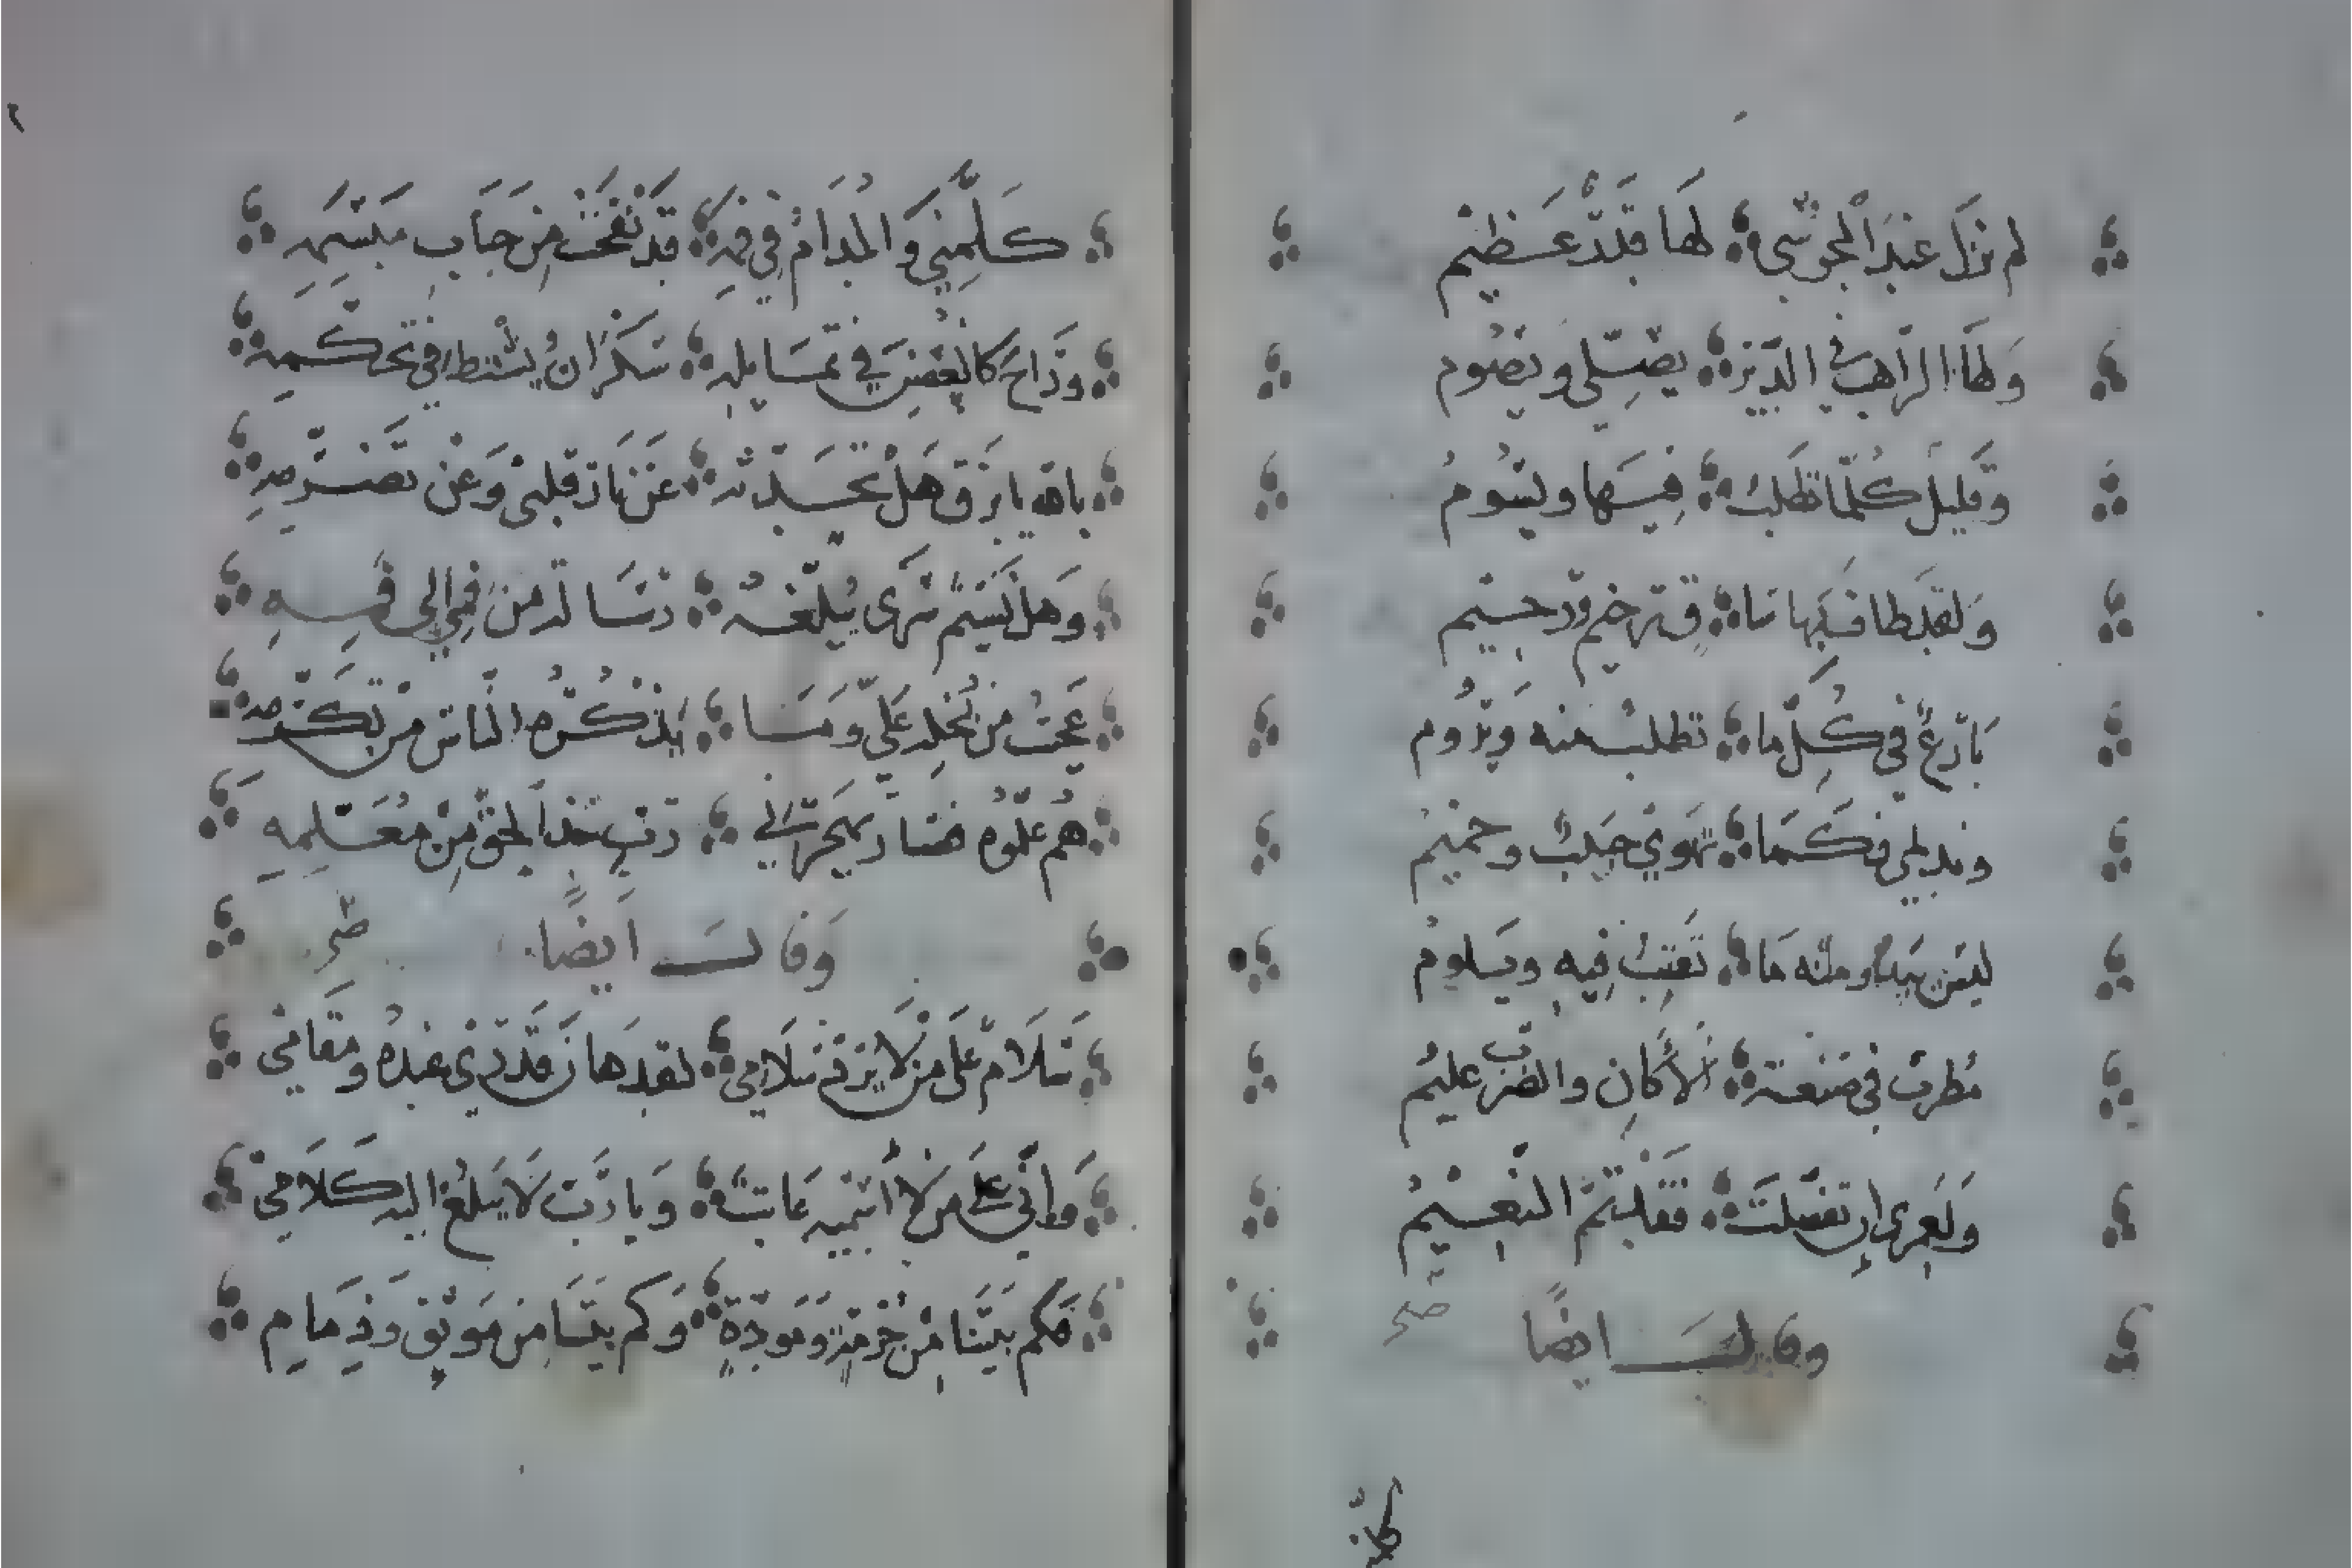 لم تزل عند المجوسي لها قدر عظيم
ولها الراهب في الدير يصلي ويصوم
وقليل كلما تطلب فيها ويسوم
ولقد طاف بها سا قٍ رخيم ورخيم
بارع في كل ما تطلب منه ويروم
ونديمي فكما تهوى حبيب وحميم
ليس يبدو منه ما تعتب فيه ويلوم
مطرب في صنعة الألحان والضرب عليم
ولعمري إن تفضلت فقد تم النعيم
وقال ايضا صح
كلمني
كلمني والمدام في فمه قد نفحت من حباب مبسمه
وراح كالغصن في تمايله سكران يشتط في تحكمه
بالله يا برق هل تحدثه عن نار قلبي وعن تضرمه
وهل نسيم سرى يبلغه رسالة من فمي إلى فمه
عجبت من بخله علي وما يذكره الناس من تكرمه
هم علموه فصار يهجرني رب خذ الحق من معلمه
وقال ايضا صح
سلام على من لا يرد سلامي لقد هان قدري عنده ومقامي
وإني على من لا أسميه عاتب ويا رب لا يبلغ اليه كلامي
فكم بيننا من حرمة ومودة وكم بيننا من موثق وذمام